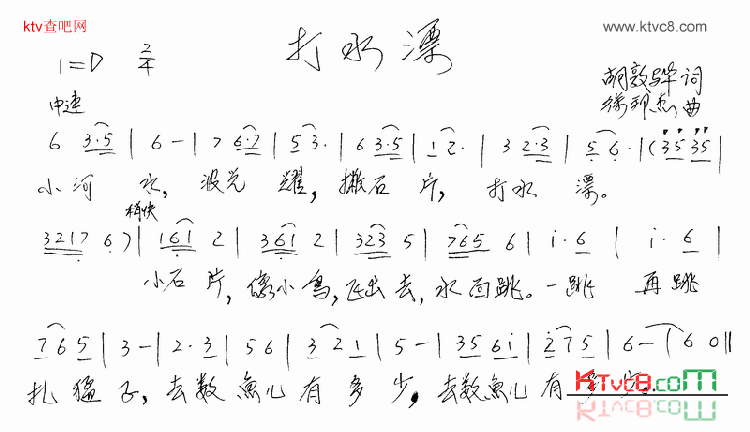 ktv查吧网
www.ktvc8.com
打水漂
1=D 2/4
胡敦骅 词
曲
中速
6 3·5 | 6 - | 7 6·7 | 5 3· | 6 3·5 | 1 2· | 3 2·3 | 5 6· | (35 35 |
小河 水, 波光 耀, 撇石 片, 打水 漂。
稍快
3217 6) | 161 2 | 361 2 | 323 5 | 765 6 | i·6 | i·6 |
小石 片, 像小鸟, 飞出去, 水面跳。一跳 再跳
765 | 3 - | 2·3 | 56 | 321 | 5 - | 356i | i75 | 6 - | 60 ||
扎猛子, 去数鱼儿有多少。去数鱼儿有
KTvc8.com